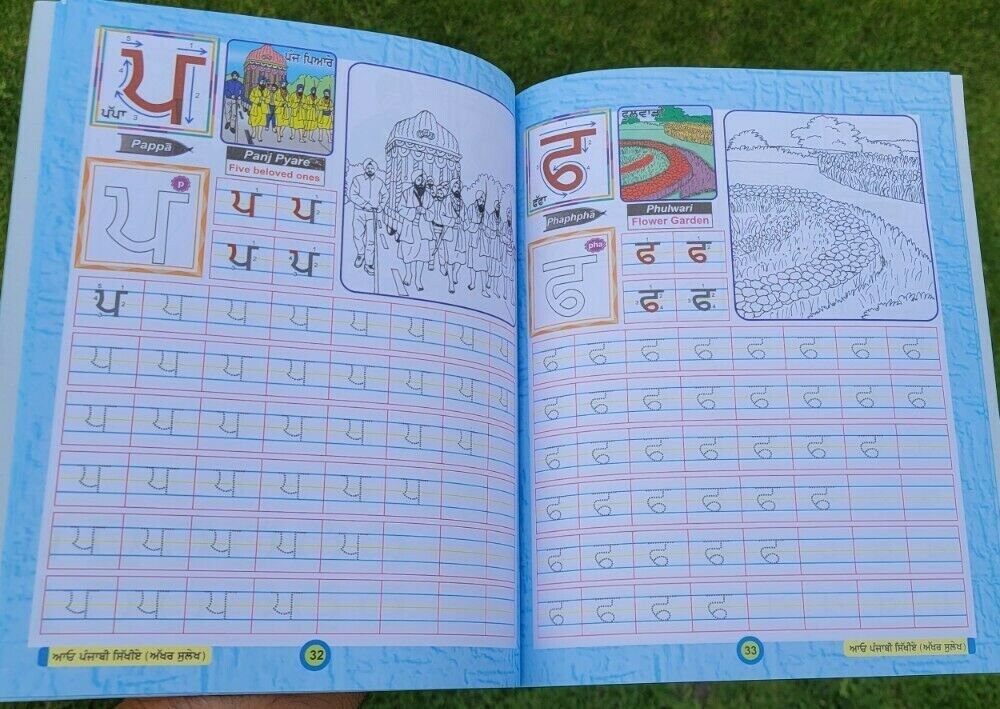 ਪ
ਪੱਪਾ
Pappa
ਪੰਜ ਪਿਆਰੇ
Panj Pyare
Five beloved ones
p
ਪ
ਪ ਪ
ਪ ਪ
ਪ ਪ ਪ ਪ ਪ ਪ ਪ ਪ
ਪ ਪ ਪ ਪ ਪ ਪ ਪ ਪ
ਪ ਪ ਪ ਪ ਪ ਪ ਪ
ਪ ਪ ਪ ਪ ਪ ਪ
ਪ ਪ ਪ ਪ ਪ
ਪ ਪ ਪ ਪ
ਆਓ ਪੰਜਾਬੀ ਸਿੱਖੀਏ (ਅੱਖਰ ਸੁਲੇਖ)
32
ਫ
ਫੱਫਾ
Phaphpha
ਫੁਲਵਾੜੀ
Phulwari
Flower Garden
pha
ਫ
ਫ ਫ
ਫ ਫ
ਫ ਫ ਫ ਫ ਫ ਫ ਫ ਫ
ਫ ਫ ਫ ਫ ਫ ਫ ਫ ਫ
ਫ ਫ ਫ ਫ ਫ ਫ ਫ
ਫ ਫ ਫ ਫ ਫ ਫ
ਫ ਫ ਫ ਫ ਫ
ਫ ਫ ਫ ਫ
33
ਆਓ ਪੰਜਾਬੀ ਸਿੱਖੀਏ (ਅੱਖਰ ਸੁਲੇਖ)